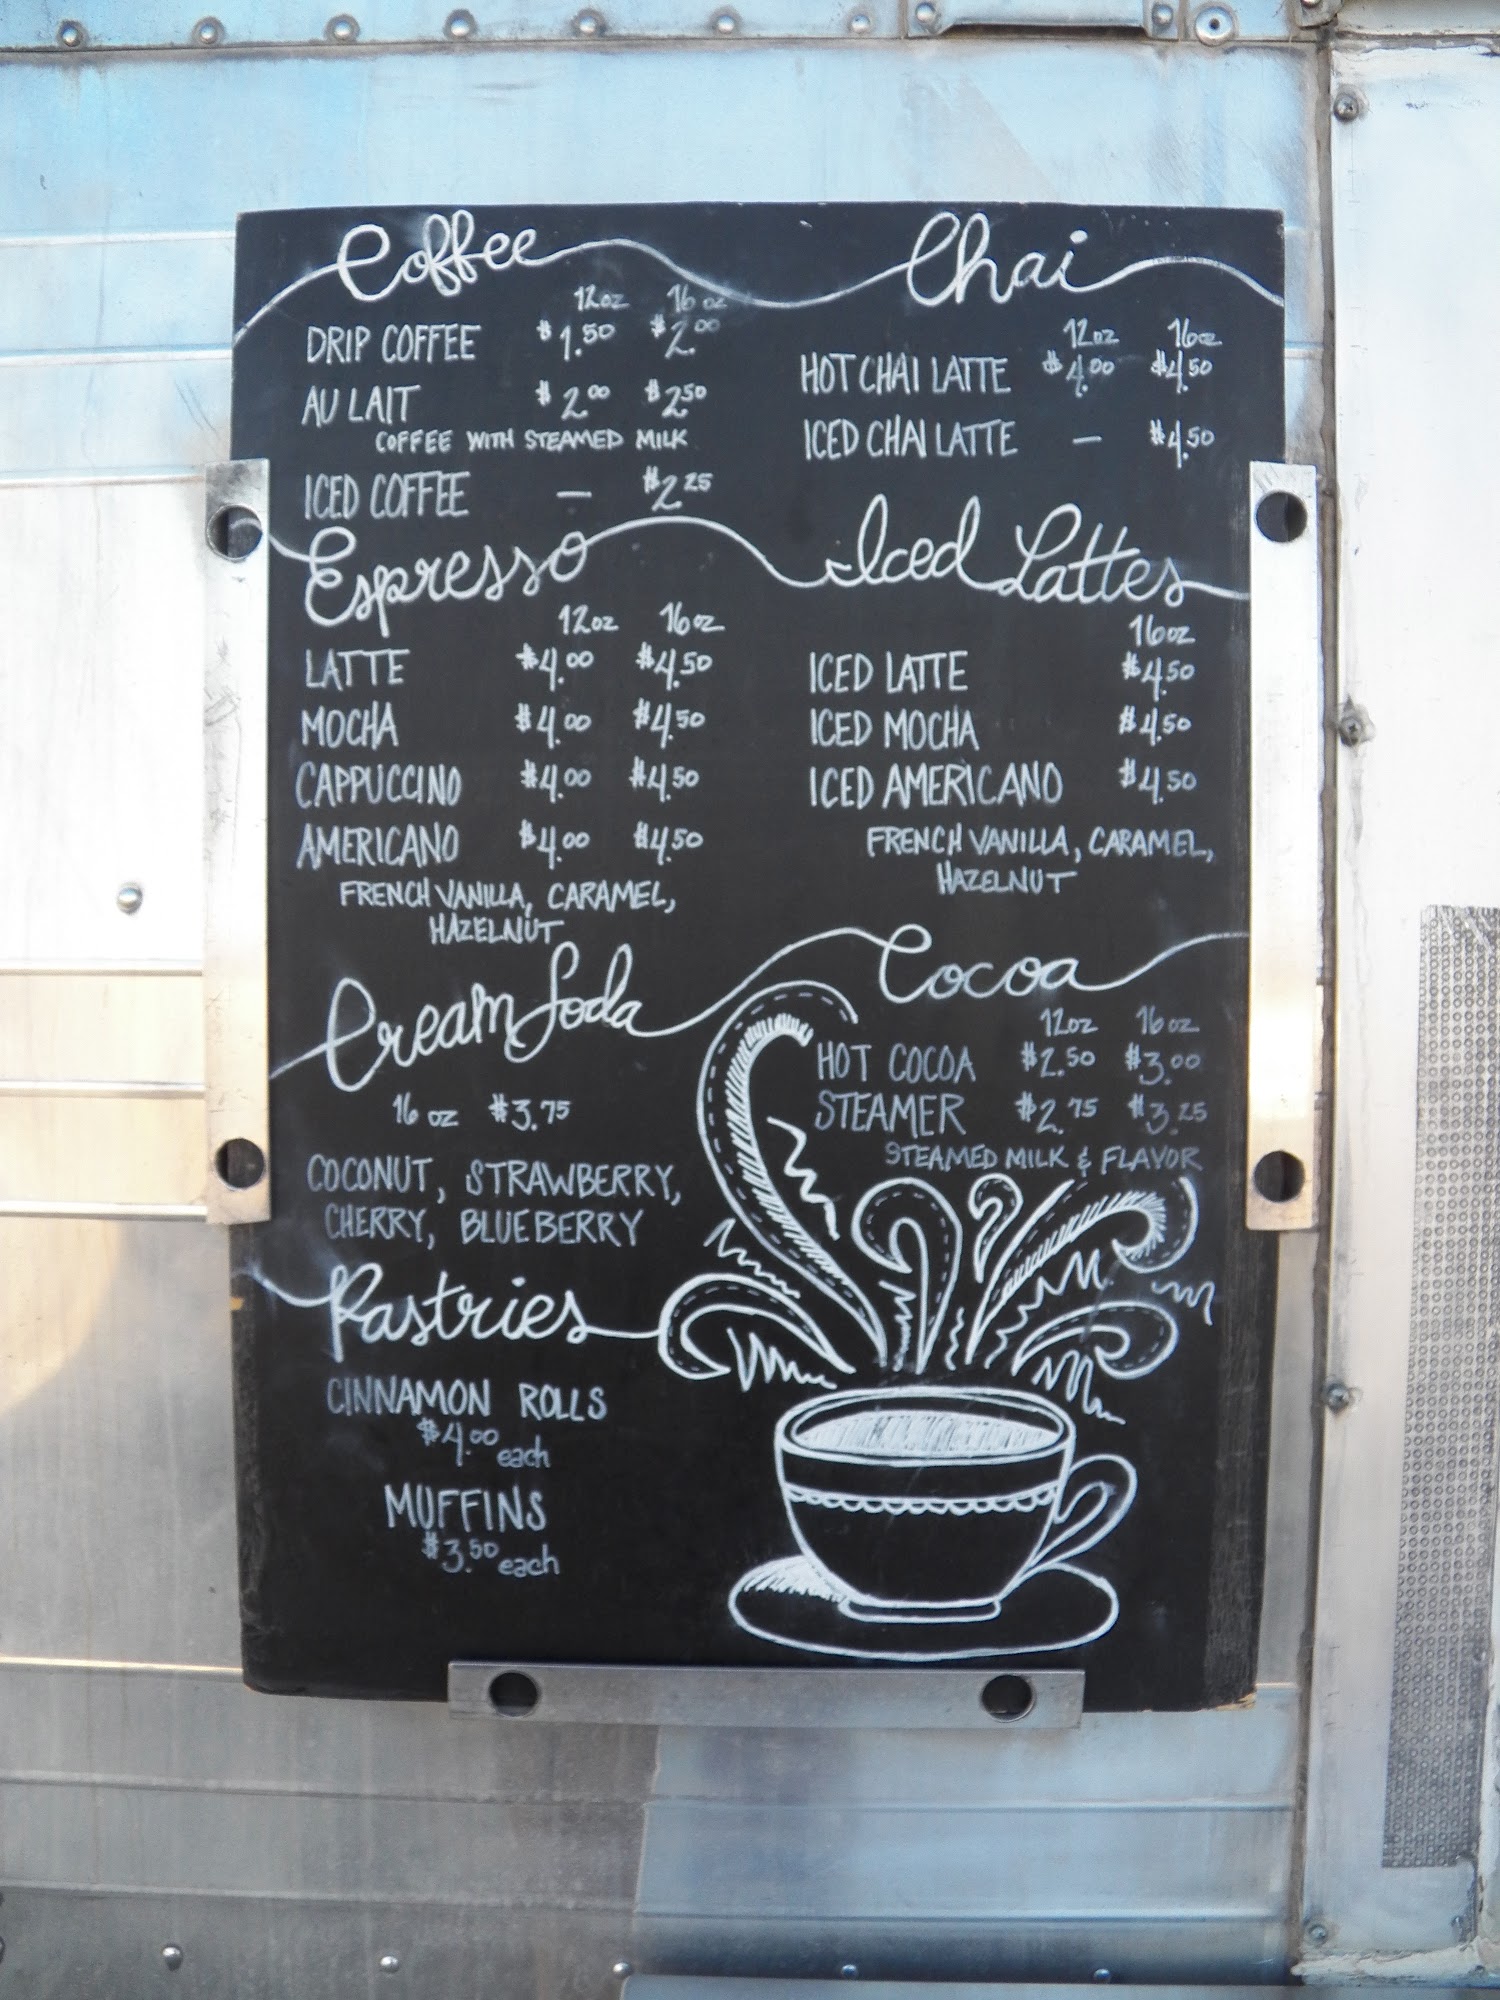 Coffee
12oz 16oz
DRIP COFFEE $1.50 $2.00
AU LAIT $2.00 $2.50
COFFEE WITH STEAMED MILK
ICED COFFEE — $2.25
Chai
12oz 16oz
HOT CHAI LATTE $4.00 $4.50
ICED CHAI LATTE — $4.50
Espresso
12oz 16oz
LATTE $4.00 $4.50
MOCHA $4.00 $4.50
CAPPUCCINO $4.00 $4.50
AMERICANO $4.00 $4.50
FRENCH VANILLA, CARAMEL,
HAZELNUT
Iced Lattes
16oz
ICED LATTE $4.50
ICED MOCHA $4.50
ICED AMERICANO $4.50
FRENCH VANILLA, CARAMEL,
HAZELNUT
Cream Soda
16 oz $3.75
COCONUT, STRAWBERRY,
CHERRY, BLUEBERRY
Cocoa
12oz 16oz
HOT COCOA $2.50 $3.00
STEAMER $2.75 $3.25
STEAMED MILK & FLAVOR
Pastries
CINNAMON ROLLS
$4.00 each
MUFFINS
$3.50 each